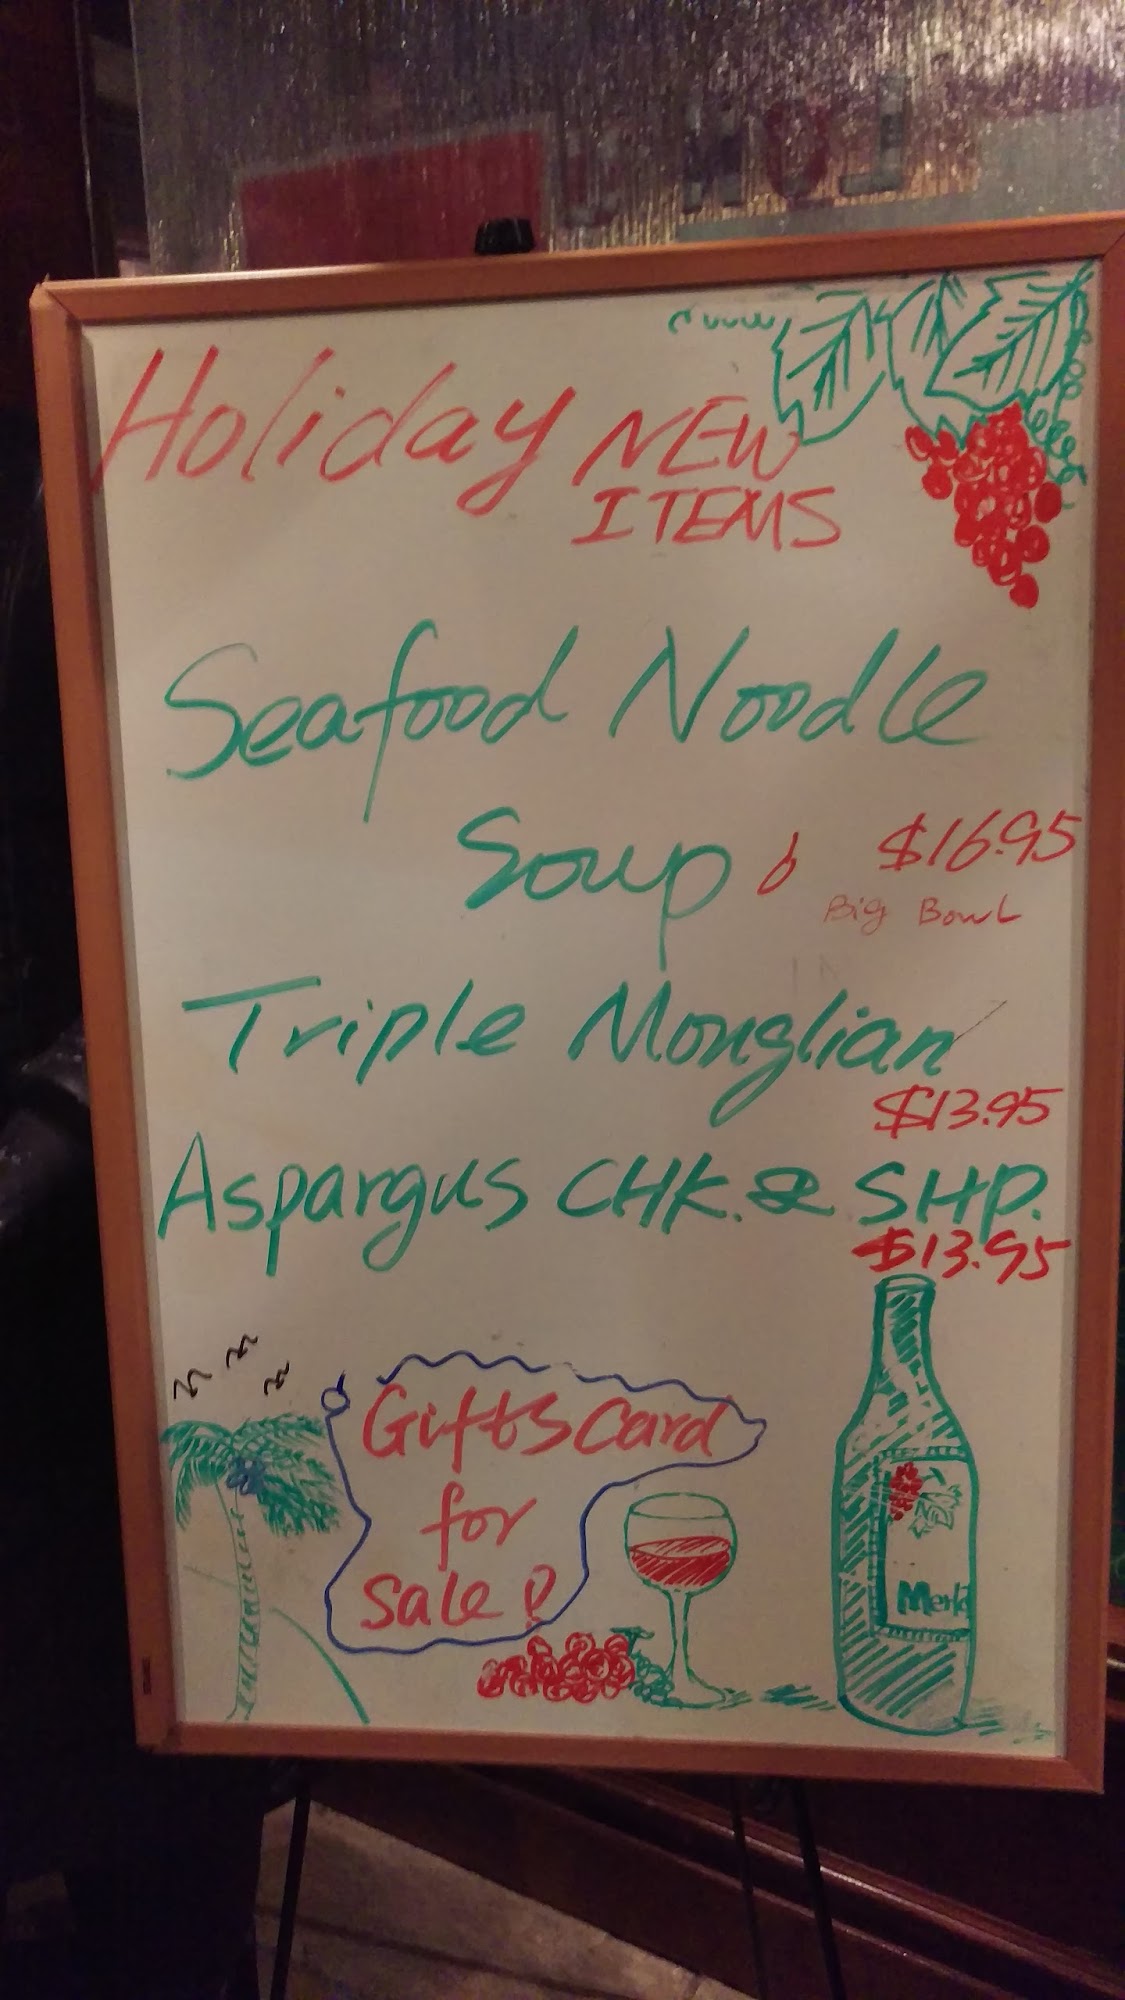 Holiday NEW
ITEMS
Seafood Noodle
Soup $16.95
Big Bowl
Triple Monglian
$13.95
Aspargus CHK. & SHP.
$13.95
Gifts Card
for
Sale!
Merlo